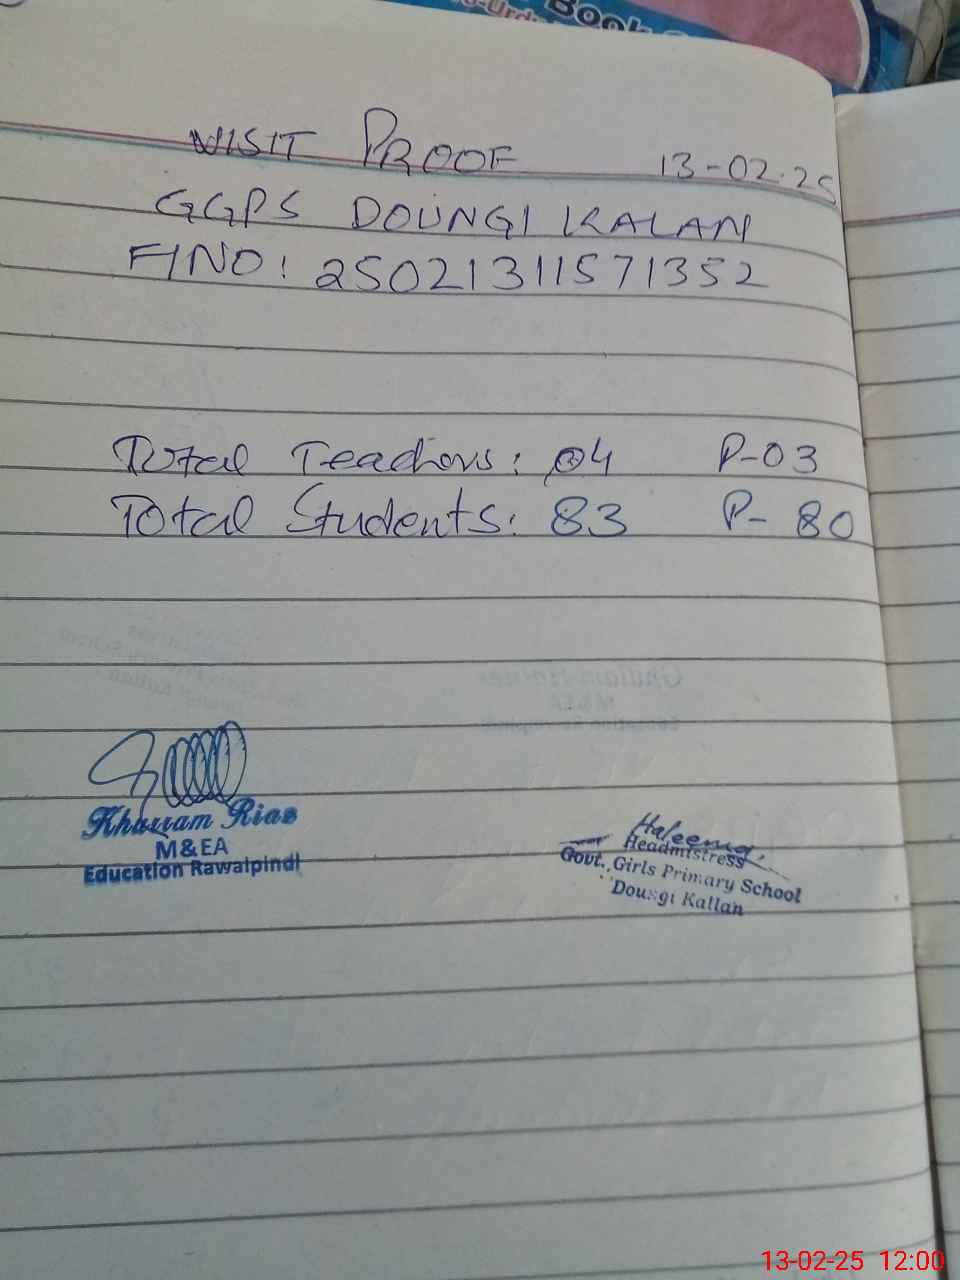 Book
VISIT PROOF 13-02-25
GGPS DOUNGI KALAN
FINO: 25021311571352
Total Teachers: 04 P-03
Total Students: 83 P- 80
Khurram Riaz
M&EA
Education Rawalpindi
Haleema
Headmistress
Govt. Girls Primary School
Doungi Kallan
13-02-25 12:00